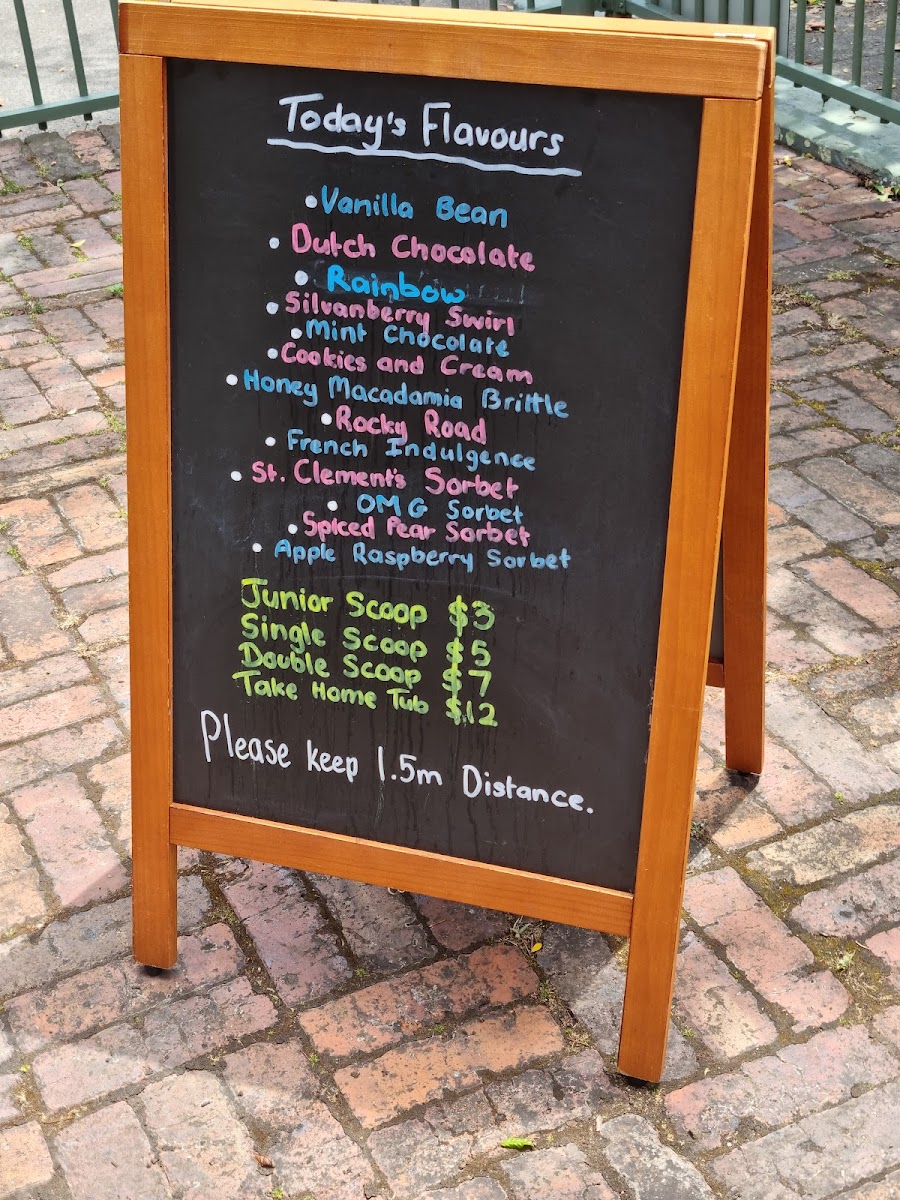 Today's Flavours
• Vanilla Bean
• Dutch Chocolate
• Rainbow
• Silvanberry Swirl
• Mint Chocolate
• Cookies and Cream
• Honey Macadamia Brittle
• Rocky Road
• French Indulgence
• St. Clement's Sorbet
• OMG Sorbet
• Spiced Pear Sorbet
• Apple Raspberry Sorbet
Junior Scoop $3
Single Scoop $5
Double Scoop $7
Take Home Tub $12
Please keep 1.5m Distance.